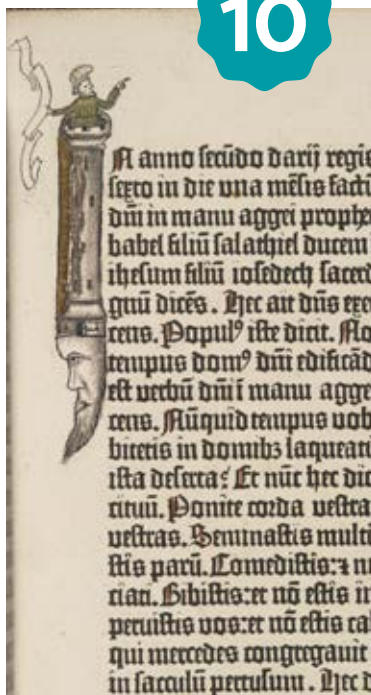 10
N anno secūdo darij regis
sexto in die vna mēsis factū
dn̄i in manu aggei prophe
babel filiū salathiel ducem
ihesum filiū iosedech sacerd
gnū dicēs. Hec ait dn̄s exer
cens. Popul⁹ iste dicit. No
tempus dom⁹ dn̄i edificād
est verbū dn̄i ī manu agge
cens. Nūquid tempus vob
bitetis in domibꝫ laqueati
ista deserta? Et nūc hec dic
cituū. Ponite corda vestra
vestras. Seminastis multū
stis parū. Comedistis: ⁊ nō
ciati. Bibistis: et nō estis in
peruistis vos: et nō estis cal
qui mercedes congregauit
in sacculū pertusum. Hec d